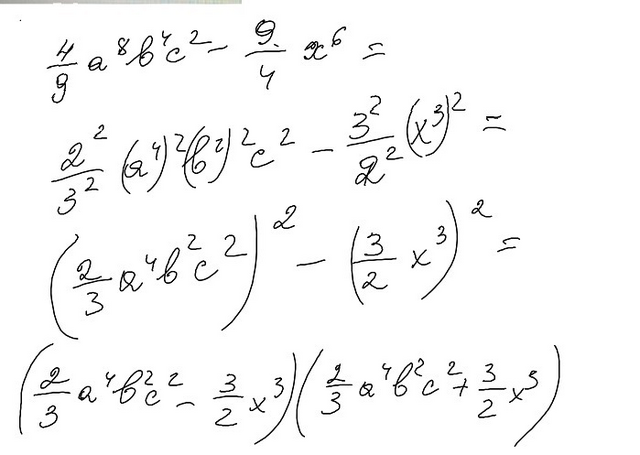 4/9 a⁸b⁴c² - 9/4 x⁶ =
2²/3² (a⁴)²(b²)²c² - 3²/2² (x³)² =
(2/3 a⁴b²c²)² - (3/2 x³)² =
(2/3 a⁴b²c² - 3/2 x³)(2/3 a⁴b²c² + 3/2 x³)